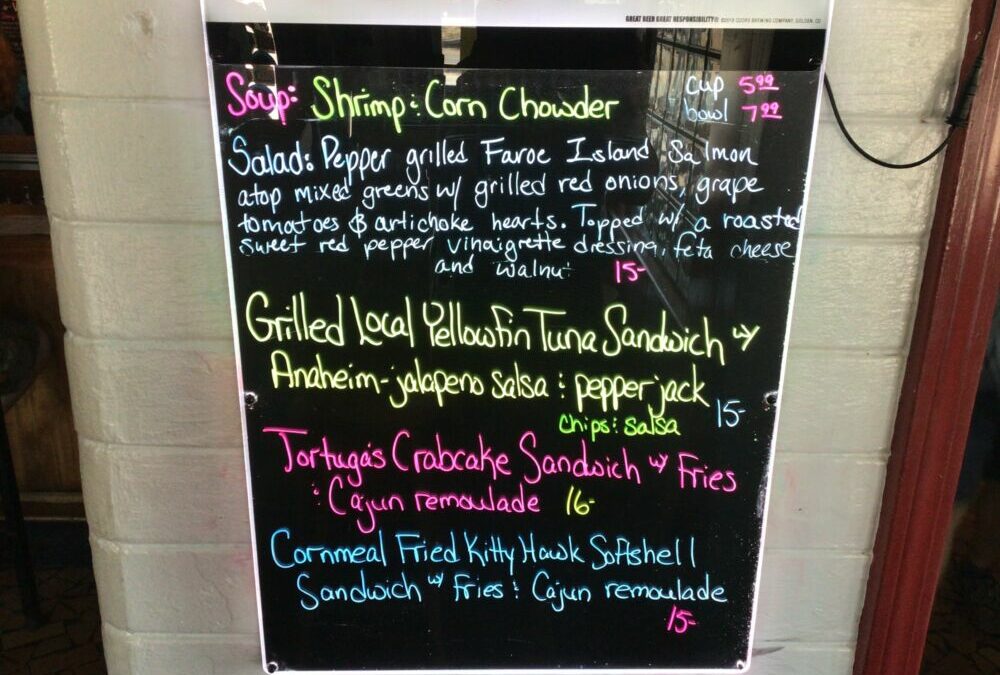 GREAT BEER GREAT RESPONSIBILITY® ©2013 COORS BREWING COMPANY, GOLDEN, CO
Soup: Shrimp & Corn Chowder cup 5.99
bowl 7.99
Salad: Pepper grilled Faroe Island Salmon
atop mixed greens w/ grilled red onions, grape
tomatoes & artichoke hearts. Topped w/ a roasted
sweet red pepper vinaigrette dressing, feta cheese
and walnut 15-
Grilled Local Yellowfin Tuna Sandwich w/
Anaheim-jalapeno salsa & pepper jack
chips & salsa 15-
Tortuga's Crabcake Sandwich w/ Fries
& Cajun remoulade 16-
Cornmeal Fried Kitty Hawk Softshell
Sandwich w/ Fries & Cajun remoulade
15-